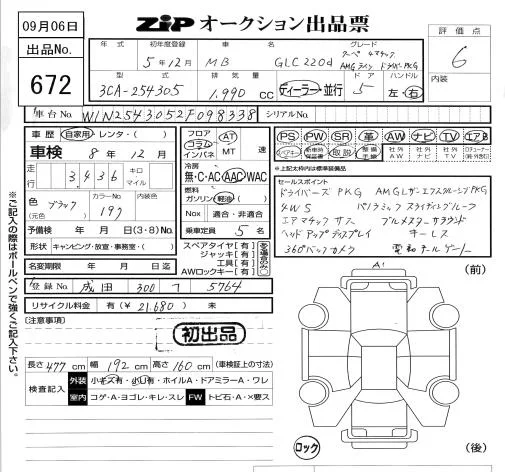 09月06日
ZiP オークション出品票
評価点
6
内装
出品No.
672
年式 初年度登録 車名 グレード
5年12月 MB GLC220d クーペ 4マチック
AMGライン ドライバーズPKG
型式 排気量 ドア ハンドル
3CA-254305 1,990 cc ディーラー・並行 5 左・右
車台No. W1N2543052F098338 シリアルNo.
車歴 自家用・レンタ・( )
車検 8年12月
走行 3,436 キロ マイル
色(元色) ブラック カラーNo. 197 内装色
予備検 年 月 日(3・8)No.
形状 キャンピング・放宣・事務室・( )
名変期限 年 月 日迄
フロア コラム インパネ AT MT 速
冷房 無・C・AC・AAC・WAC
燃料 ガソリン・軽油・( )
Nox 適合・非適合
乗車定員 5名
スペアタイヤ【有】
ジャッキ【有】
工具【有】
AWロックキー【有】
PS PW SR 革 AW ナビ TV エアB
取説 社外AW 社外ナビ 社外TV
*上記太枠内は標準装備品
セールスポイント
ドライバーズPKG AMGレザーエクスクルーシブPKG
4WS パノラミックスライディングルーフ
エアマチックサス ブルメスターサラウンド
ヘッドアップディスプレイ キーレス
360°バックカメラ 電動テールゲート
登録No. 成田 300 フ 5764
リサイクル料金 有(¥21,680) 未
【注意事項】
初出品
長さ 477 cm 幅 192 cm 高さ 160 cm (車検証上の寸法)
検査記入 外装 小キズ有・小凹有・ホイルA・ドアミラーA・ワレ
室内 コゲ・A・ヨゴレ・キレ・スレ FW トビ石・A・×要ス
A1
(前)
ロック
(後)
※ご記入の際はボールペンで強くご記入下さい。